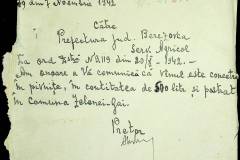 29 din 7 Noembrie 1942
Către
Prefectura Jud. Berezovka
Serv. Agricol
La ord. No 2119 din 20/X -1942.-
Am onoare a Vă comunica că vinul este
în pivnițe, în cantitatea de 500 litri și păstrat
în comuna Zelenei-Gai.
Pretor